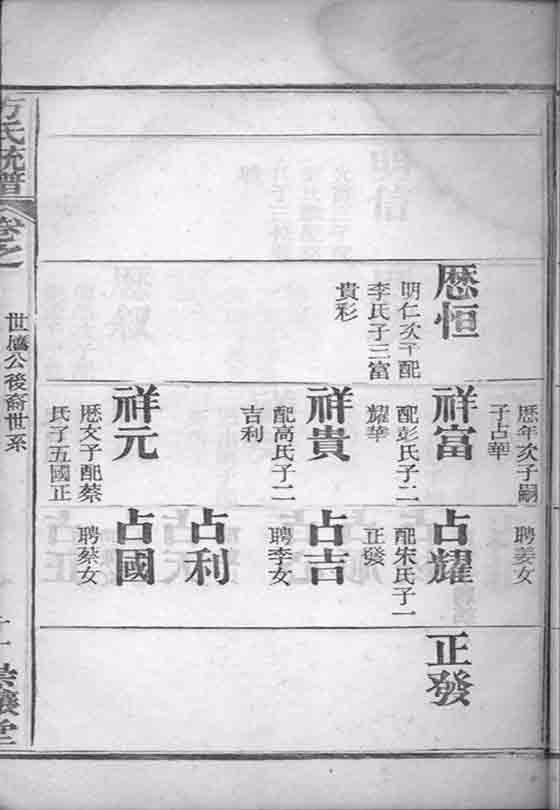 厯恒
明仁次子配
李氏子三富
貴彩
厯年次子嗣
子占華
祥富
配彭氏子二
耀華
祥貴
配高氏子二
吉利
祥元
厯文子配蔡
氏子五國正
聘姜女
占耀
配宋氏子一
正發
占吉
聘李女
占利
占國
聘蔡女
正發
方氏統譜
卷之
世厯公後裔世系
堂